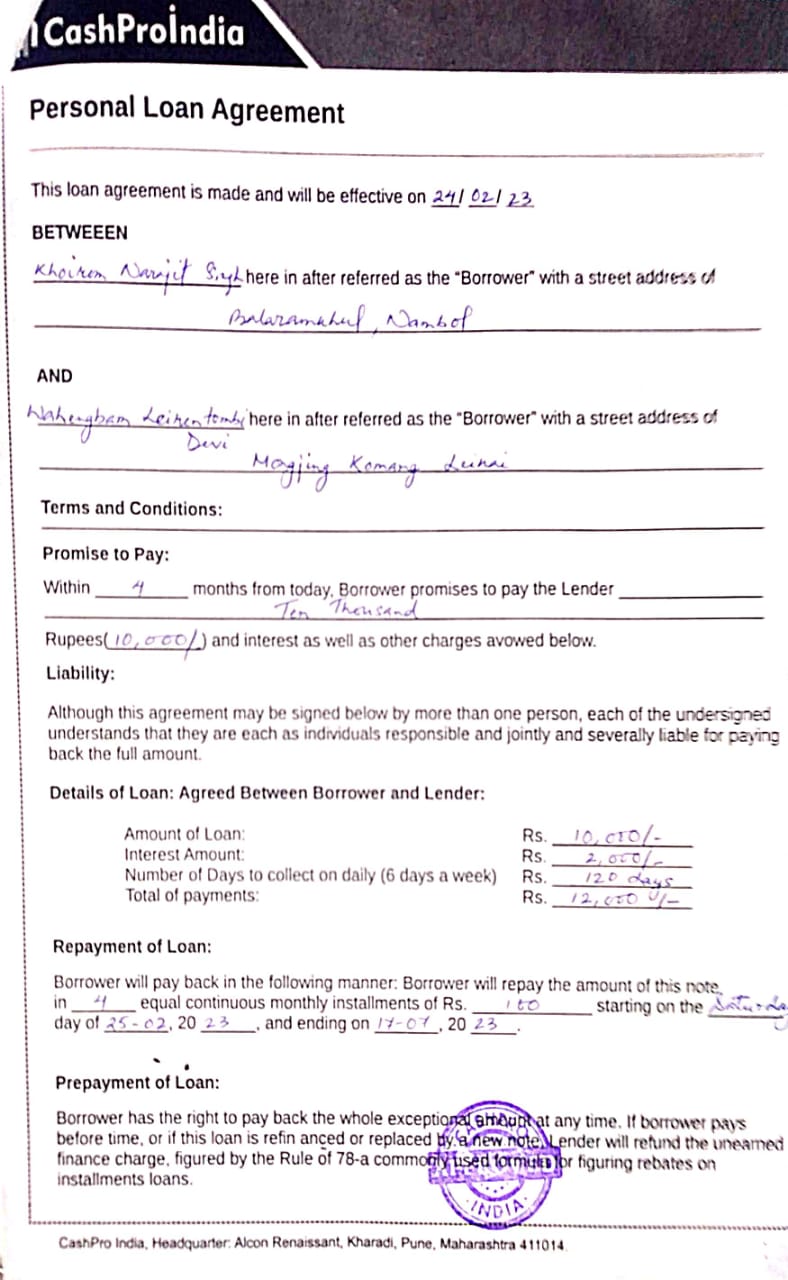 CashProIndia
Personal Loan Agreement
This loan agreement is made and will be effective on 24/ 02/ 23
BETWEEEN
Khoirom Narajit Singh here in after referred as the "Borrower" with a street address of
Nambol
AND
Wahengbam Leirentombi here in after referred as the "Borrower" with a street address of
Devi
Mongjing Komang Leikai
Terms and Conditions:
Promise to Pay:
Within 4 months from today, Borrower promises to pay the Lender
Ten Thousand
Rupees( 10,000/ ) and interest as well as other charges avowed below.
Liability:
Although this agreement may be signed below by more than one person, each of the undersigned
understands that they are each as individuals responsible and jointly and severally liable for paying
back the full amount.
Details of Loan: Agreed Between Borrower and Lender:
Amount of Loan: Rs. 10,000/-
Interest Amount: Rs. 2,000/-
Number of Days to collect on daily (6 days a week) Rs. 120 days
Total of payments: Rs. 12,000/-
Repayment of Loan:
Borrower will pay back in the following manner: Borrower will repay the amount of this note
in 4 equal continuous monthly installments of Rs. 100 starting on the Saturday
day of 25-02, 20 23, and ending on 17-07, 20 23.
Prepayment of Loan:
Borrower has the right to pay back the whole exceptional amount at any time. If borrower pays
before time, or if this loan is refin anced or replaced by a new note, Lender will refund the unearned
finance charge, figured by the Rule of 78-a commonly used formula for figuring rebates on
installments loans.
INDIA
CashPro India, Headquarter: Alcon Renaissant, Kharadi, Pune, Maharashtra 411014